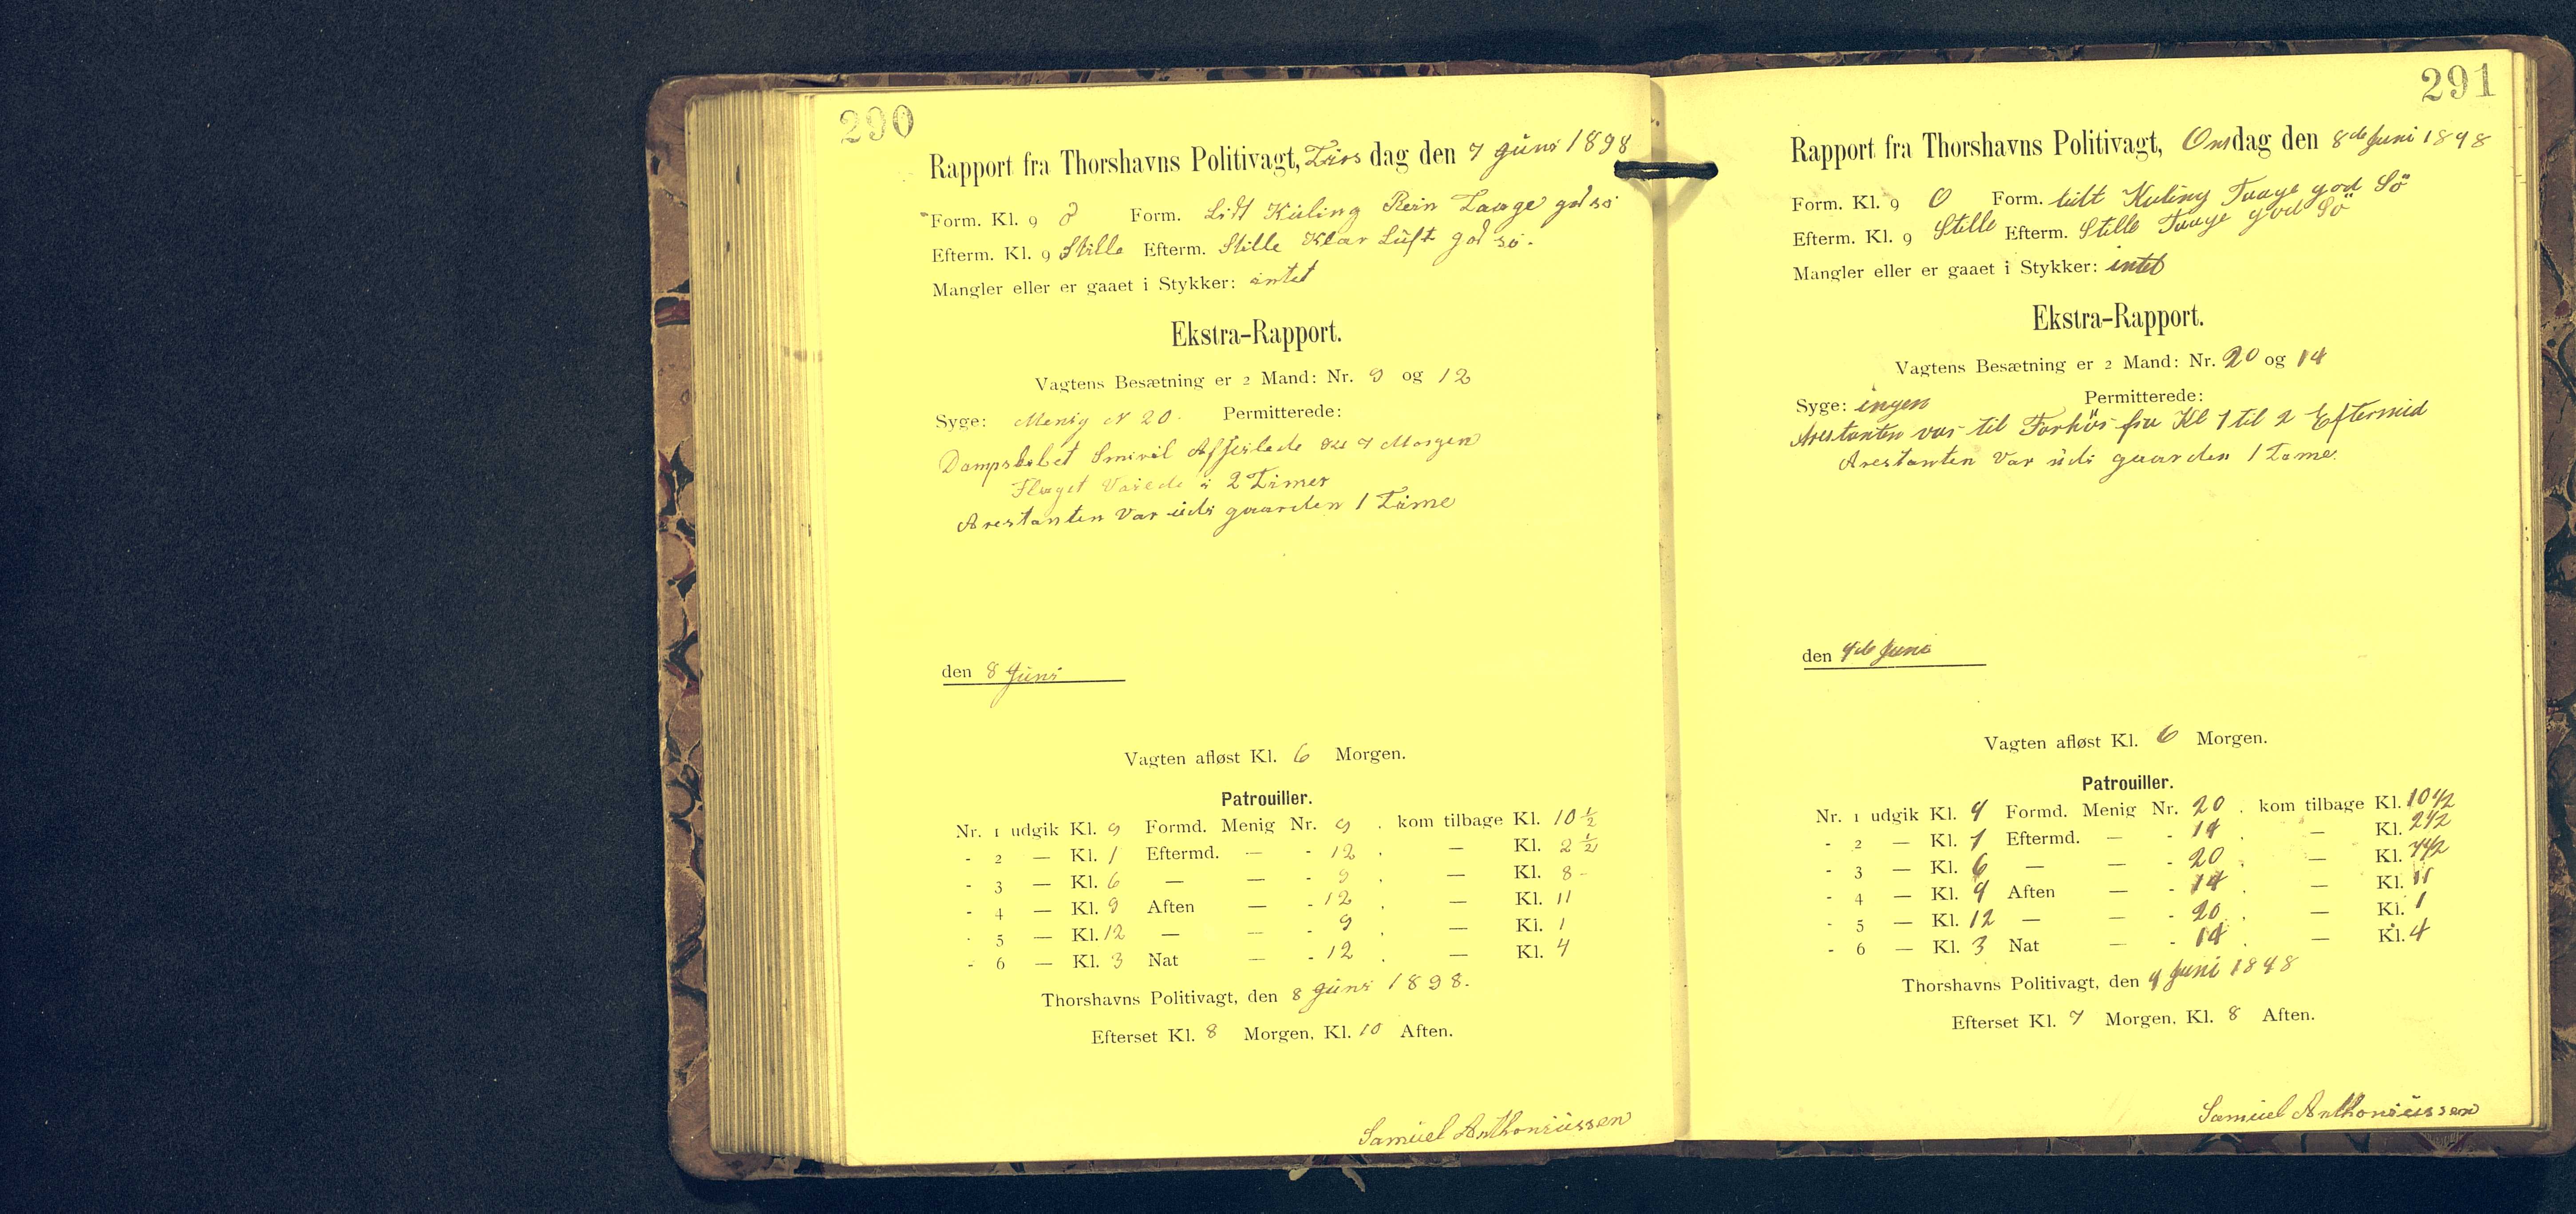 290
Rapport fra Thorshavns Politivagt, Tirsdag den 7 Juni 1898
Form. Kl. 9 O Form. Lidt Kuling Rein Taage god sö
Efterm. Kl. 9 Stille Efterm. Stille Klar Luft god sö.
Mangler eller er gaaet i Stykker: intet
Ekstra-Rapport.
Vagtens Besætning er 2 Mand: Nr. 9 og 12
Syge: Menig N 20. Permitterede:
Dampskibet Smiril Afseilede Kl 7 Morgen
Flaget Vaiede i 2 Timer
Arestanten Var udi gaarden 1 Time
den 8 Juni
Vagten afløst Kl. 6 Morgen.
Patrouiller.
Nr. 1 udgik Kl. 9 Formd. Menig Nr. 9 . kom tilbage Kl. 10 ½
- 2 — Kl. 1 Eftermd. — - 12 . — Kl. 2 ½
- 3 — Kl. 6 — — - 9 . — Kl. 8 -
- 4 — Kl. 9 Aften — - 12 . — Kl. 11
- 5 — Kl. 12 — — - 9 . — Kl. 1
- 6 — Kl. 3 Nat — - 12 . — Kl. 4
Thorshavns Politivagt, den 8 Juni 1898.
Efterset Kl. 8 Morgen, Kl. 10 Aften.
Samuel Anthoniussen
291
Rapport fra Thorshavns Politivagt, Onsdag den 8de Juni 1898
Form. Kl. 9 O Form. lidt Kuling Taage god Sö
Efterm. Kl. 9 Stille Efterm. Stille Taage god Sö
Mangler eller er gaaet i Stykker: intet
Ekstra-Rapport.
Vagtens Besætning er 2 Mand: Nr. 20 og 14
Syge: ingen Permitterede:
Arestanten var til Forhör fra Kl 1 til 2 Eftermid
Arestanten Var udi gaarden 1 Time.
den 9de Juni
Vagten afløst Kl. 6 Morgen.
Patrouiller.
Nr. 1 udgik Kl. 9 Formd. Menig Nr. 20 . kom tilbage Kl. 10 1/2
- 2 — Kl. 1 Eftermd. — - 14 . — Kl. 2 1/2
- 3 — Kl. 6 — — - 20 . — Kl. 7 1/2
- 4 — Kl. 9 Aften — - 14 . — Kl. 11
- 5 — Kl. 12 — — - 20 . — Kl. 1
- 6 — Kl. 3 Nat — - 14 . — Kl. 4
Thorshavns Politivagt, den 9 Juni 1898
Efterset Kl. 7 Morgen, Kl. 8 Aften.
Samuel Anthoniussen